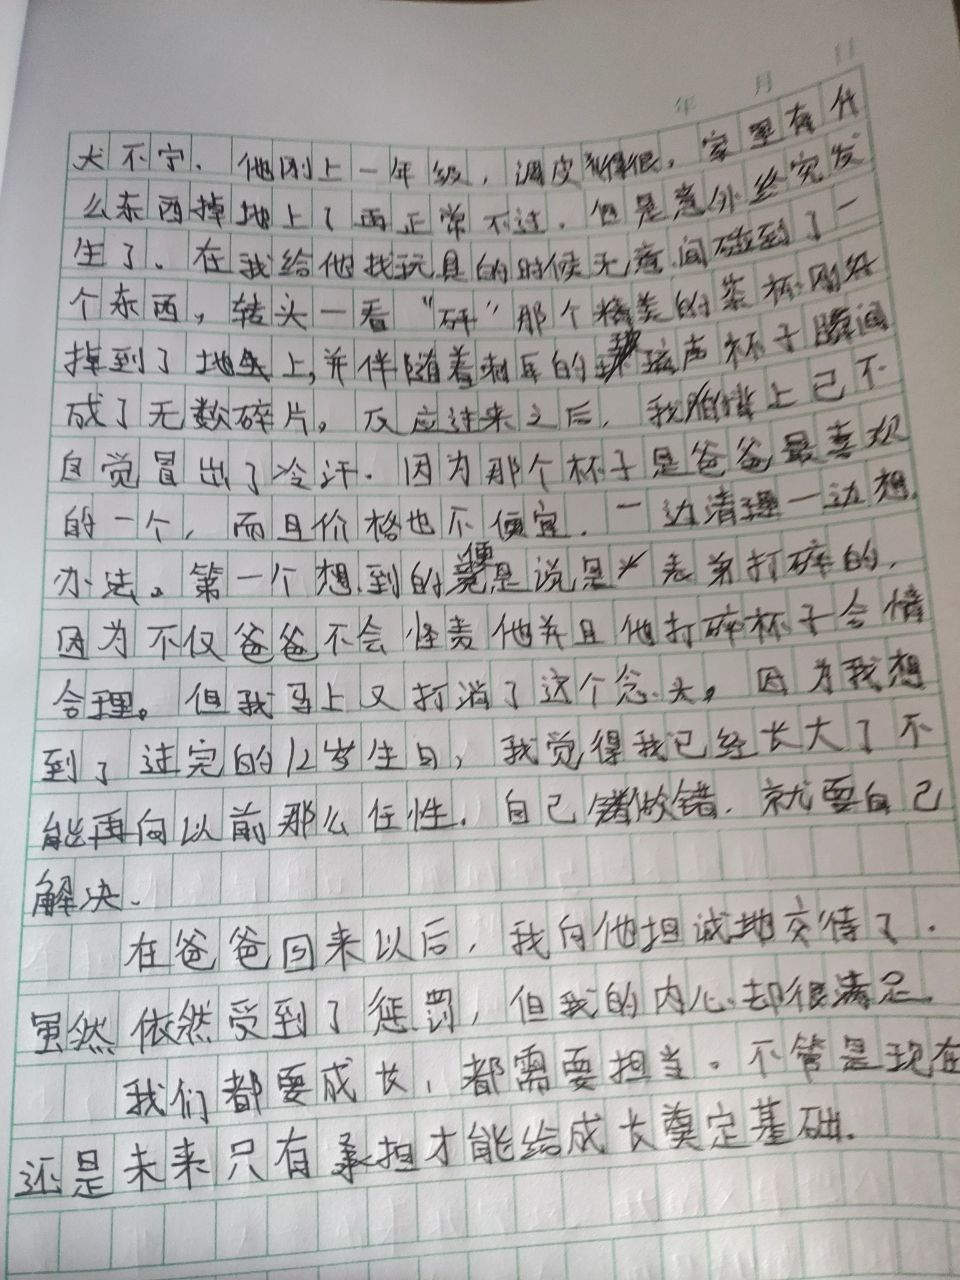 年 月 日
犬不宁．他刚上一年级，调皮得很．家里有什
么东西掉地上了再正常不过．但是意外终究发
生了．在我给他找玩具的时候无意间碰到了一
个东西，转头一看“砰”那个精美的茶杯刚好
掉到了地上，并伴随着刺耳的玻璃声杯子瞬间
成了无数碎片。反应过来之后，我嘴上已不
自觉冒出了冷汗．因为那个杯子是爸爸最喜欢
的一个，而且价格也不便宜．一边清理一边想
办法。第一个想到的便是说是表弟打碎的，
因为不仅爸爸不会怪责他并且他打碎杯子合情
合理。但我马上又打消了这个念头。因为我想
到了过完的12岁生日，我觉得我已经长大了不
能再向以前那么任性．自己做错．就要自己
解决．
在爸爸回来以后，我向他担诚地交待了．
虽然依然受到了惩罚，但我的内心却很满足．
我们都要成长，都需要担当。不管是现在
还是未来只有承担才能给成长奠定基础．